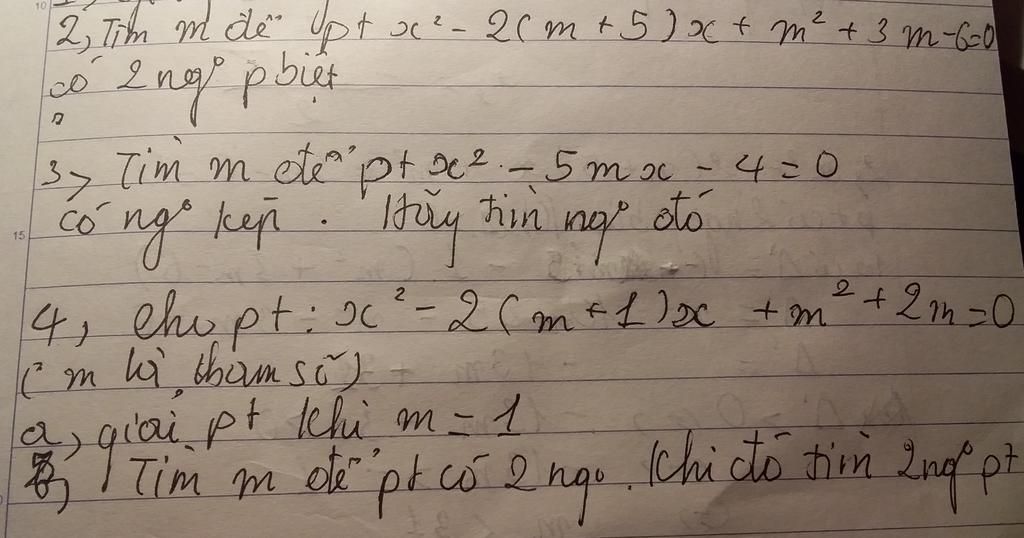 2, Tìm m để pt x² - 2(m + 5)x + m² + 3m - 6=0
có 2 ngº p biệt
3> Tìm m để pt x² - 5mx - 4 = 0
có ngº kép. Hãy tìm ngº đó
15
4, Cho pt: x² - 2(m + 1)x + m² + 2m = 0
(m là tham số)
a, giải pt khi m = 1
b, Tìm m để pt có 2 ngº. Khi đó tìm 2 ngº pt